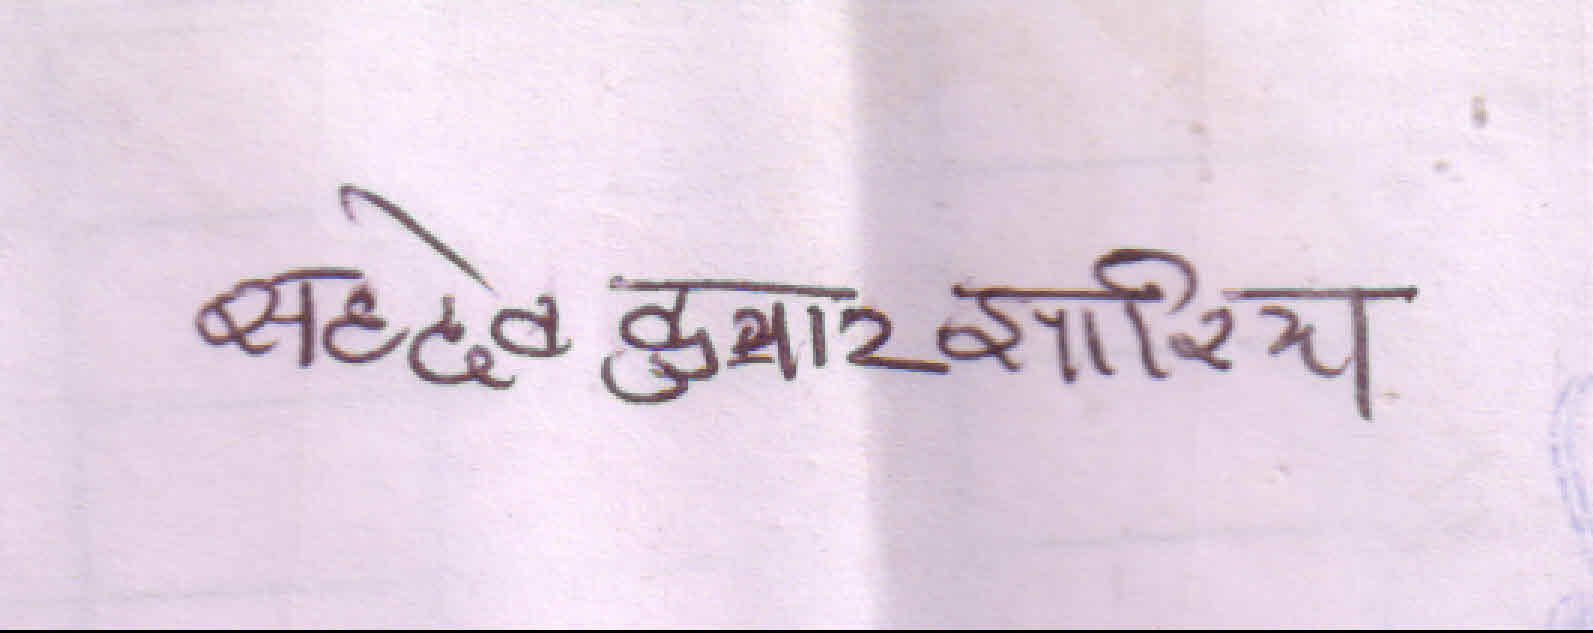 सहदेव कुमार झारिया